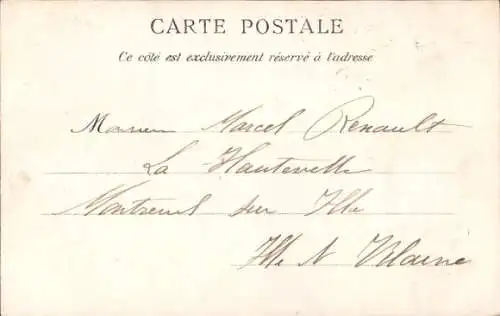 CARTE POSTALE
Ce côté est exclusivement réservé à l'adresse
Monsieur Marcel Renault
La Hauteville
Montreuil sur Ille
Ille & Vilaine